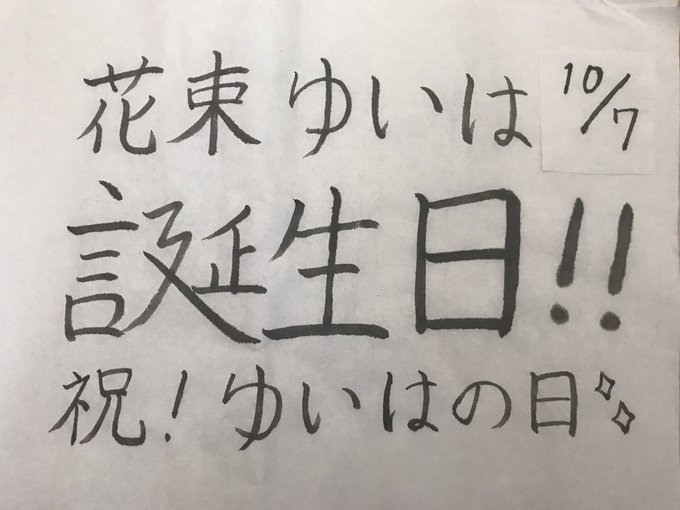 花束ゆいは 10/7
誕生日!!
祝!ゆいはの日